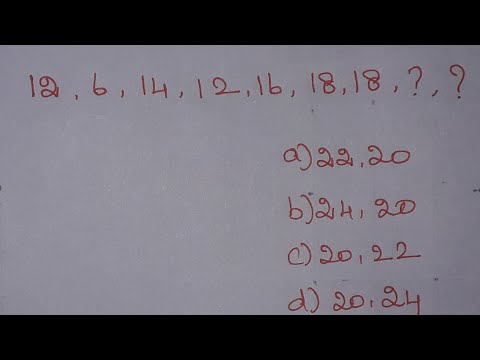 12, 6, 14, 12, 16, 18, 18, ?, ?
a) 22, 20
b) 24, 20
c) 20, 22
d) 20, 24